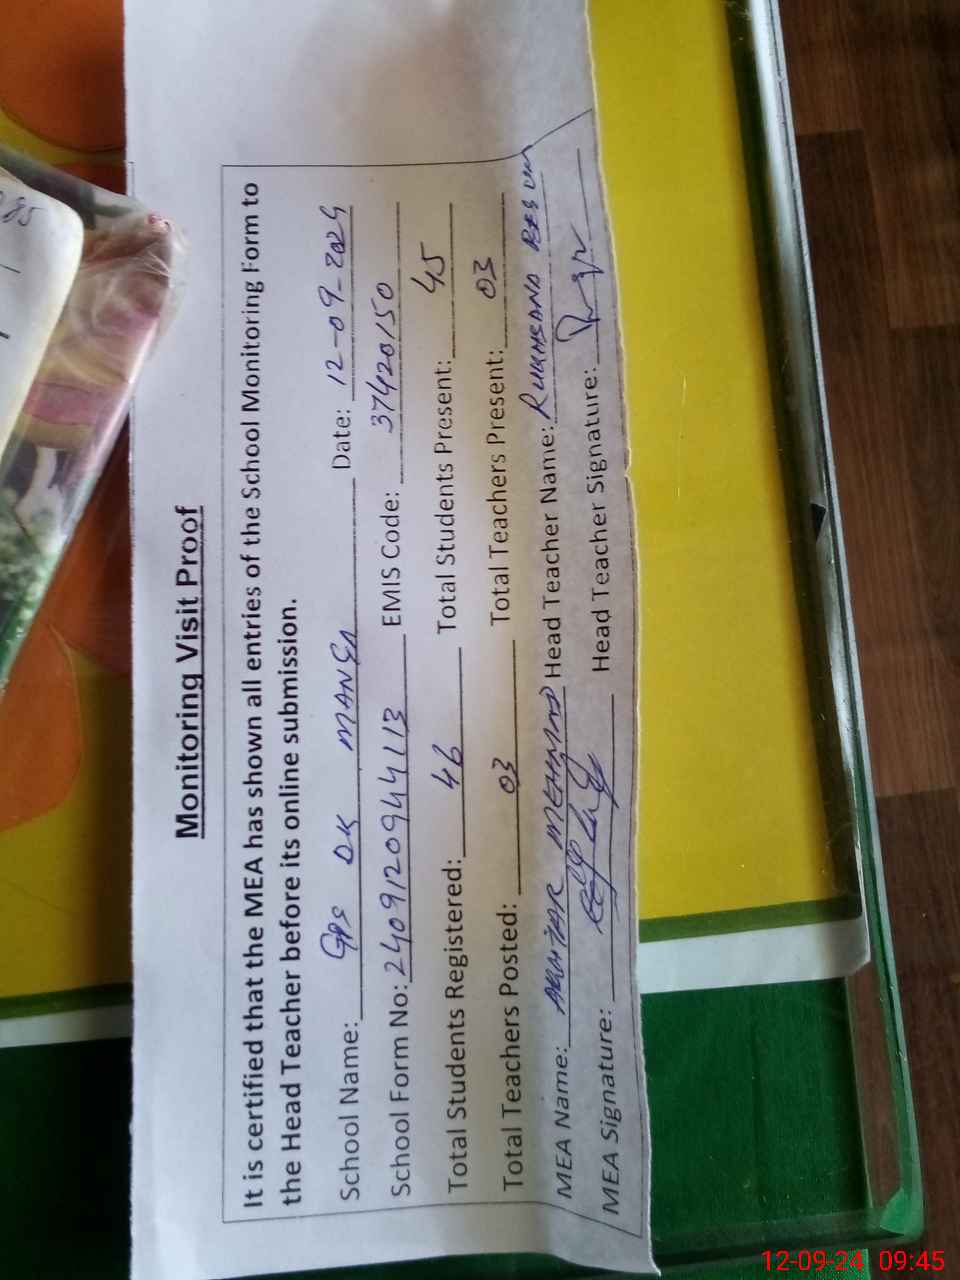 Monitoring Visit Proof
It is certified that the MEA has shown all entries of the School Monitoring Form to
the Head Teacher before its online submission.
School Name: GPS DK MANGA Date: 12-09-2024
School Form No: 2409120944113 EMIS Code: 37420150
Total Students Registered: 46 Total Students Present: 45
Total Teachers Posted: 03 Total Teachers Present: 03
MEA Name: AKHTAR MEHMOOD Head Teacher Name: RUKHSANA
MEA Signature: Head Teacher Signature:
12-09-24 09:45